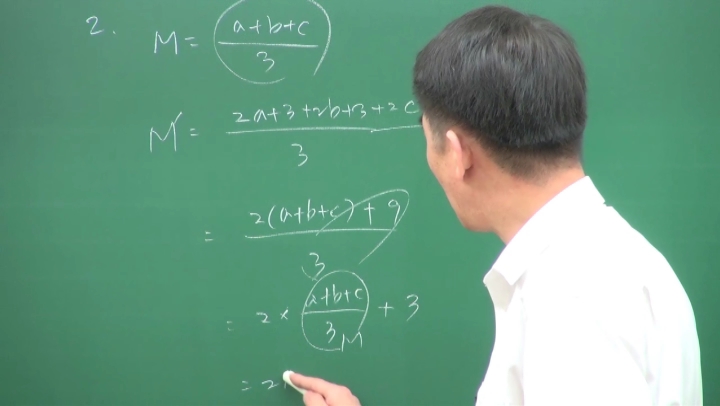 2. M = a+b+c / 3
M' = 2a+3+2b+3+2c / 3
= 2(a+b+c)+9 / 3
= 2 × a+b+c / 3 + 3
M
= 2